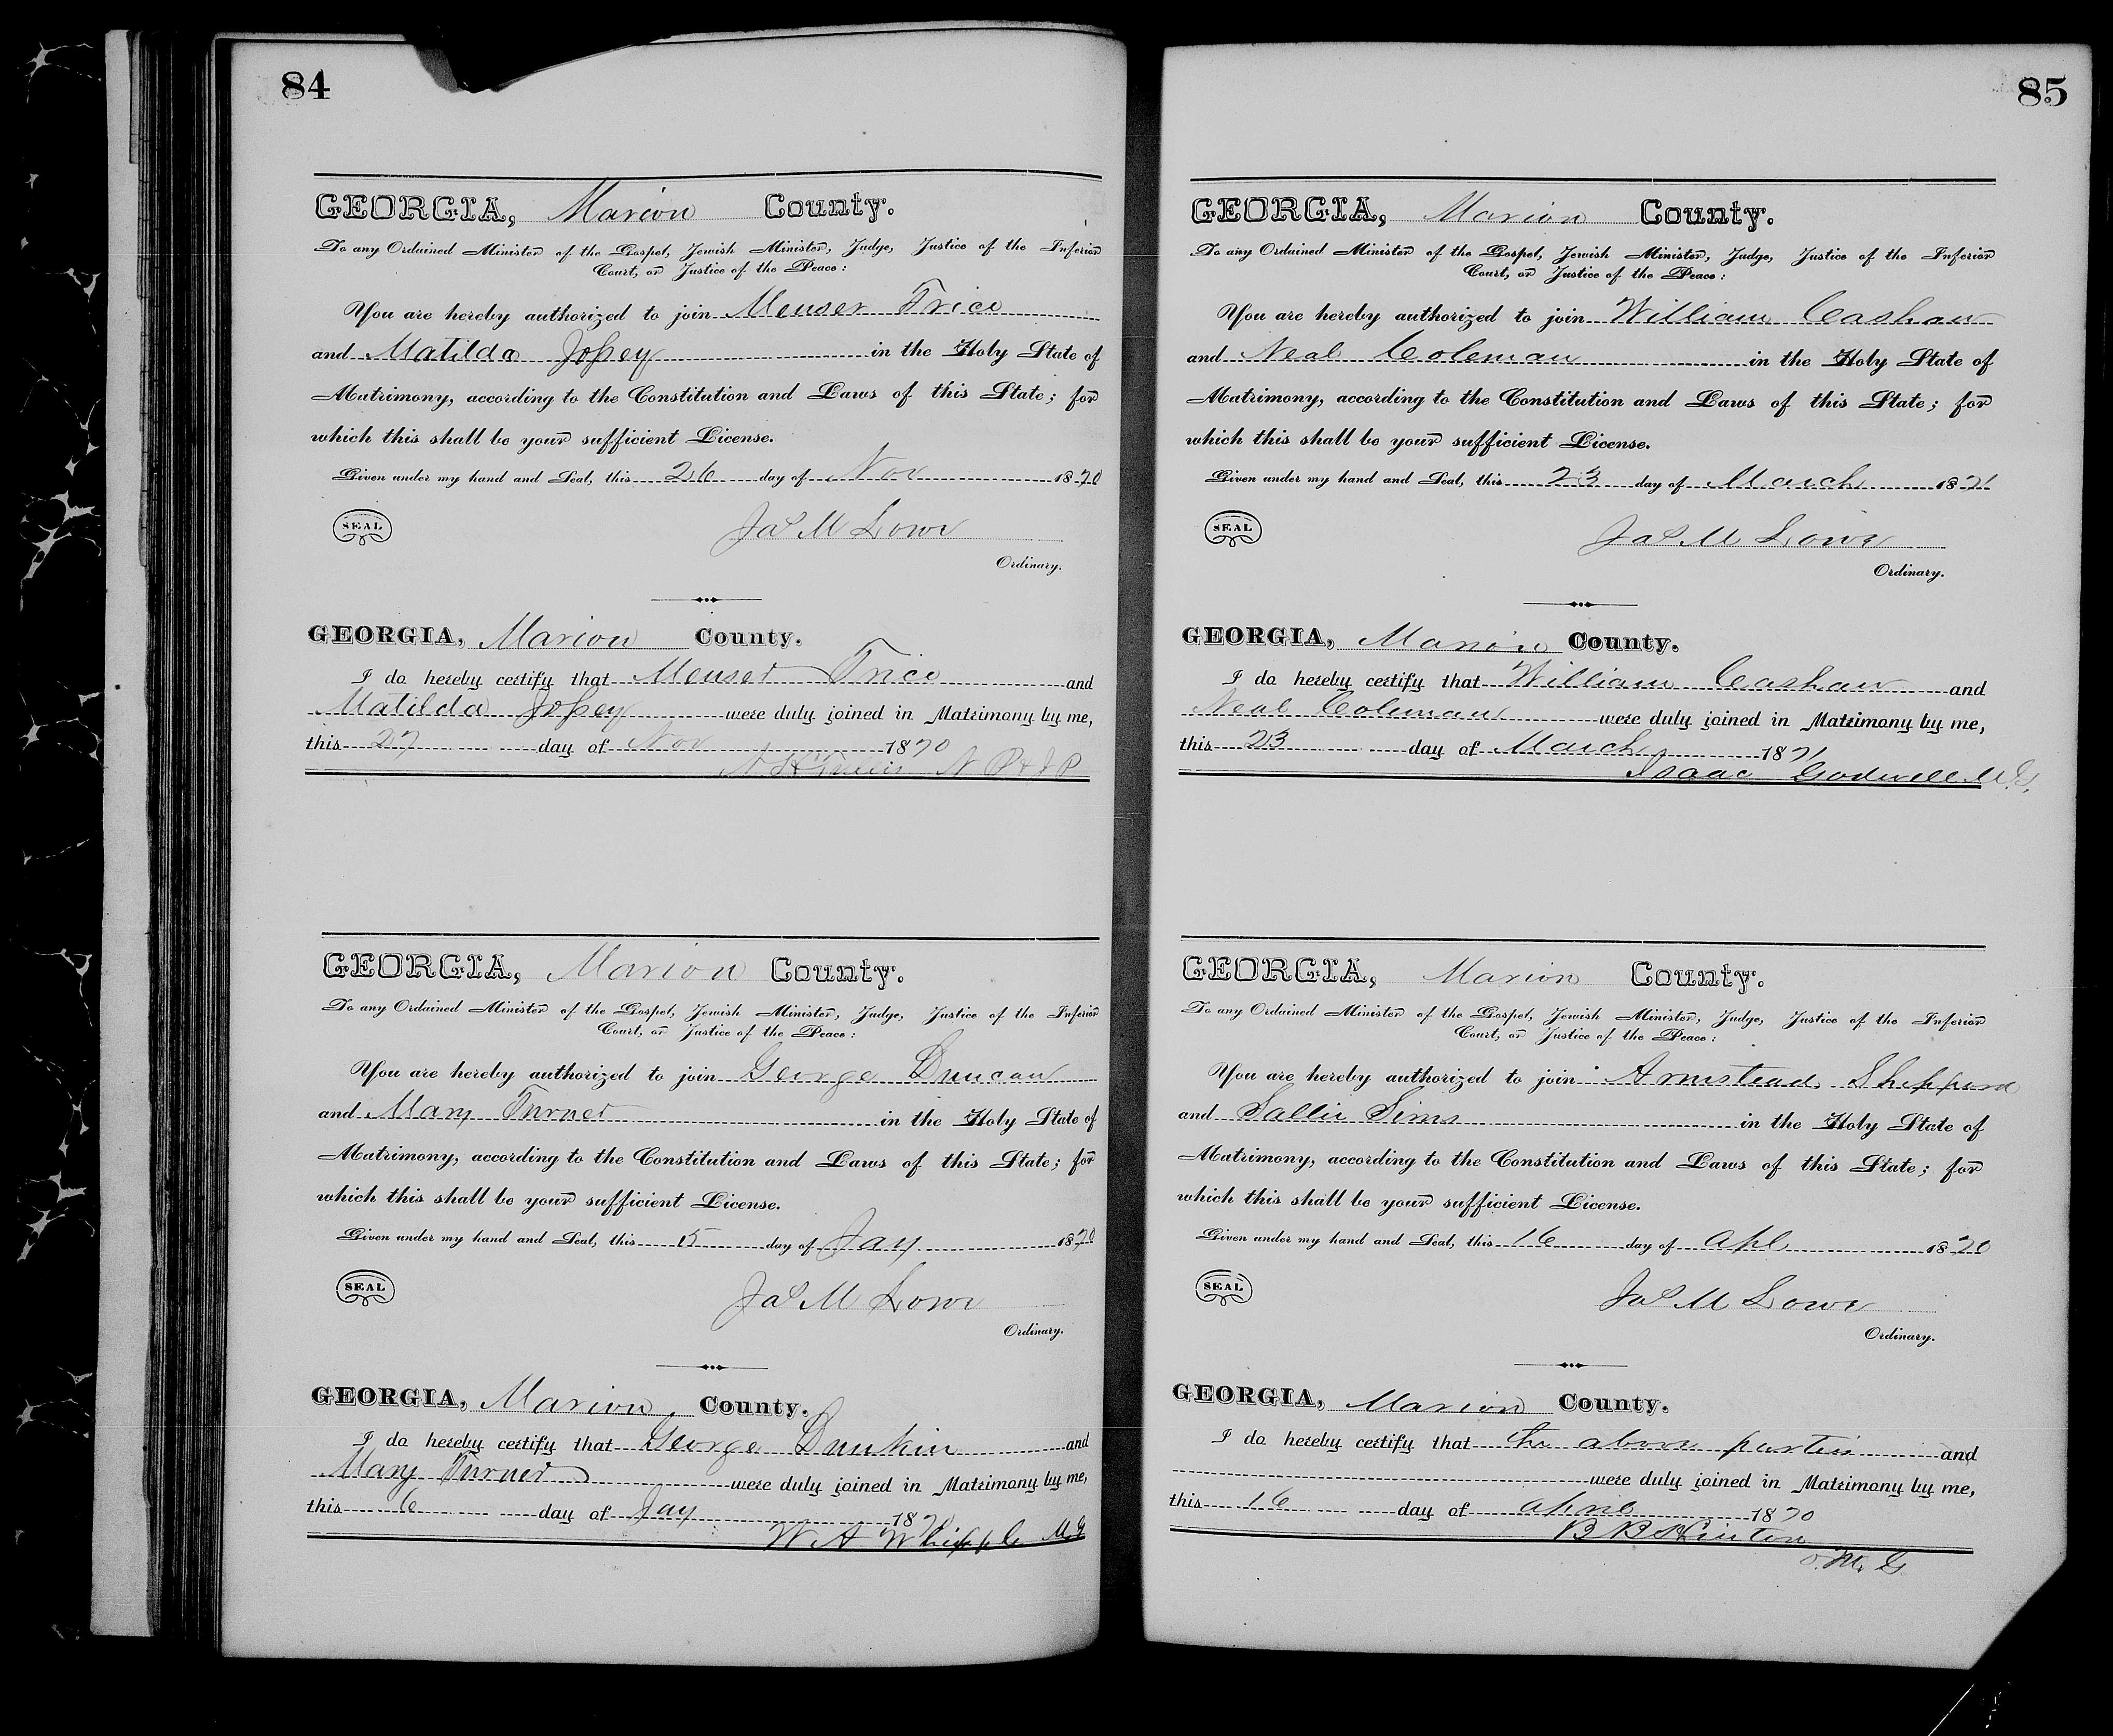 84
GEORGIA, Marion County.
To any Ordained Minister of the Gospel, Jewish Minister, Judge, Justice of the Inferior
Court, or Justice of the Peace:
You are hereby authorized to join Menser Trice
and Matilda Jossey in the Holy State of
Matrimony, according to the Constitution and Laws of this State; for
which this shall be your sufficient License.
Given under my hand and Seal, this 26 day of Nov 1870
SEAL
Jas M Lowe
Ordinary.
GEORGIA, Marion County.
I do hereby certify that Menser Trice and
Matilda Jossey were duly joined in Matrimony by me,
this 27 day of Nov 1870
N P & J P
GEORGIA, Marion County.
To any Ordained Minister of the Gospel, Jewish Minister, Judge, Justice of the Inferior
Court, or Justice of the Peace:
You are hereby authorized to join George Duncan
and Mary Turner in the Holy State of
Matrimony, according to the Constitution and Laws of this State; for
which this shall be your sufficient License.
Given under my hand and Seal, this 5 day of Jay 1870
SEAL
Jas M Lowe
Ordinary.
GEORGIA, Marion County.
I do hereby certify that George Dunkin and
Mary Turner were duly joined in Matrimony by me,
this 6 day of Jay 1870
W A Whipple M G
85
GEORGIA, Marion County.
To any Ordained Minister of the Gospel, Jewish Minister, Judge, Justice of the Inferior
Court, or Justice of the Peace:
You are hereby authorized to join William Cashaw
and Neal Coleman in the Holy State of
Matrimony, according to the Constitution and Laws of this State; for
which this shall be your sufficient License.
Given under my hand and Seal, this 23 day of March 1871
SEAL
Jas M Lowe
Ordinary.
GEORGIA, Marion County.
I do hereby certify that William Cashaw and
Neal Coleman were duly joined in Matrimony by me,
this 23 day of March 1871
Isaac Godwell M.G.
GEORGIA, Marion County.
To any Ordained Minister of the Gospel, Jewish Minister, Judge, Justice of the Inferior
Court, or Justice of the Peace:
You are hereby authorized to join Armstead Sheppard
and Sallie Sims in the Holy State of
Matrimony, according to the Constitution and Laws of this State; for
which this shall be your sufficient License.
Given under my hand and Seal, this 16 day of Apl 1870
SEAL
Jas M Lowe
Ordinary.
GEORGIA, Marion County.
I do hereby certify that the above parties and
were duly joined in Matrimony by me,
this 16 day of April 1870
B B Hinton
O. M. G